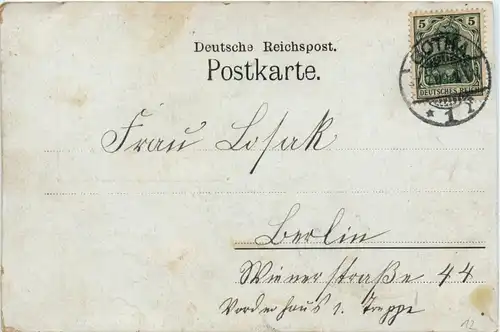 5 5
GOTHA
DEUTSCHES REICH
* 1 *
Deutsche Reichspost.
Postkarte.
Frau Losak
Berlin
Wienerstraße 44
Vorderhaus 1. Treppe
12